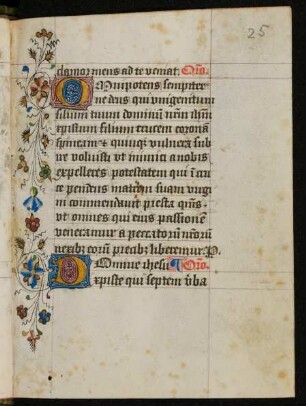 25
clamor meus ad te veniat. Oro.
Omnipotens sempiter
ne deus qui vnigenitum
filium tuum dominū nr̄m ihm̄
xpistum filium crucem coronā
spineam et quinqȝ vulnera sub
ire voluisti vt inimici a nobis
expelleres potestatem qui ī cru
ce pendens matrem suam virgi
ni commendauit presta qs̄
vt omnes qui eius passionē
veneramur a peccatorū nr̄orū
nexibȝ eorū precibȝ liberemur. P.
Domine ihesu Oro.
xpiste qui septem vba